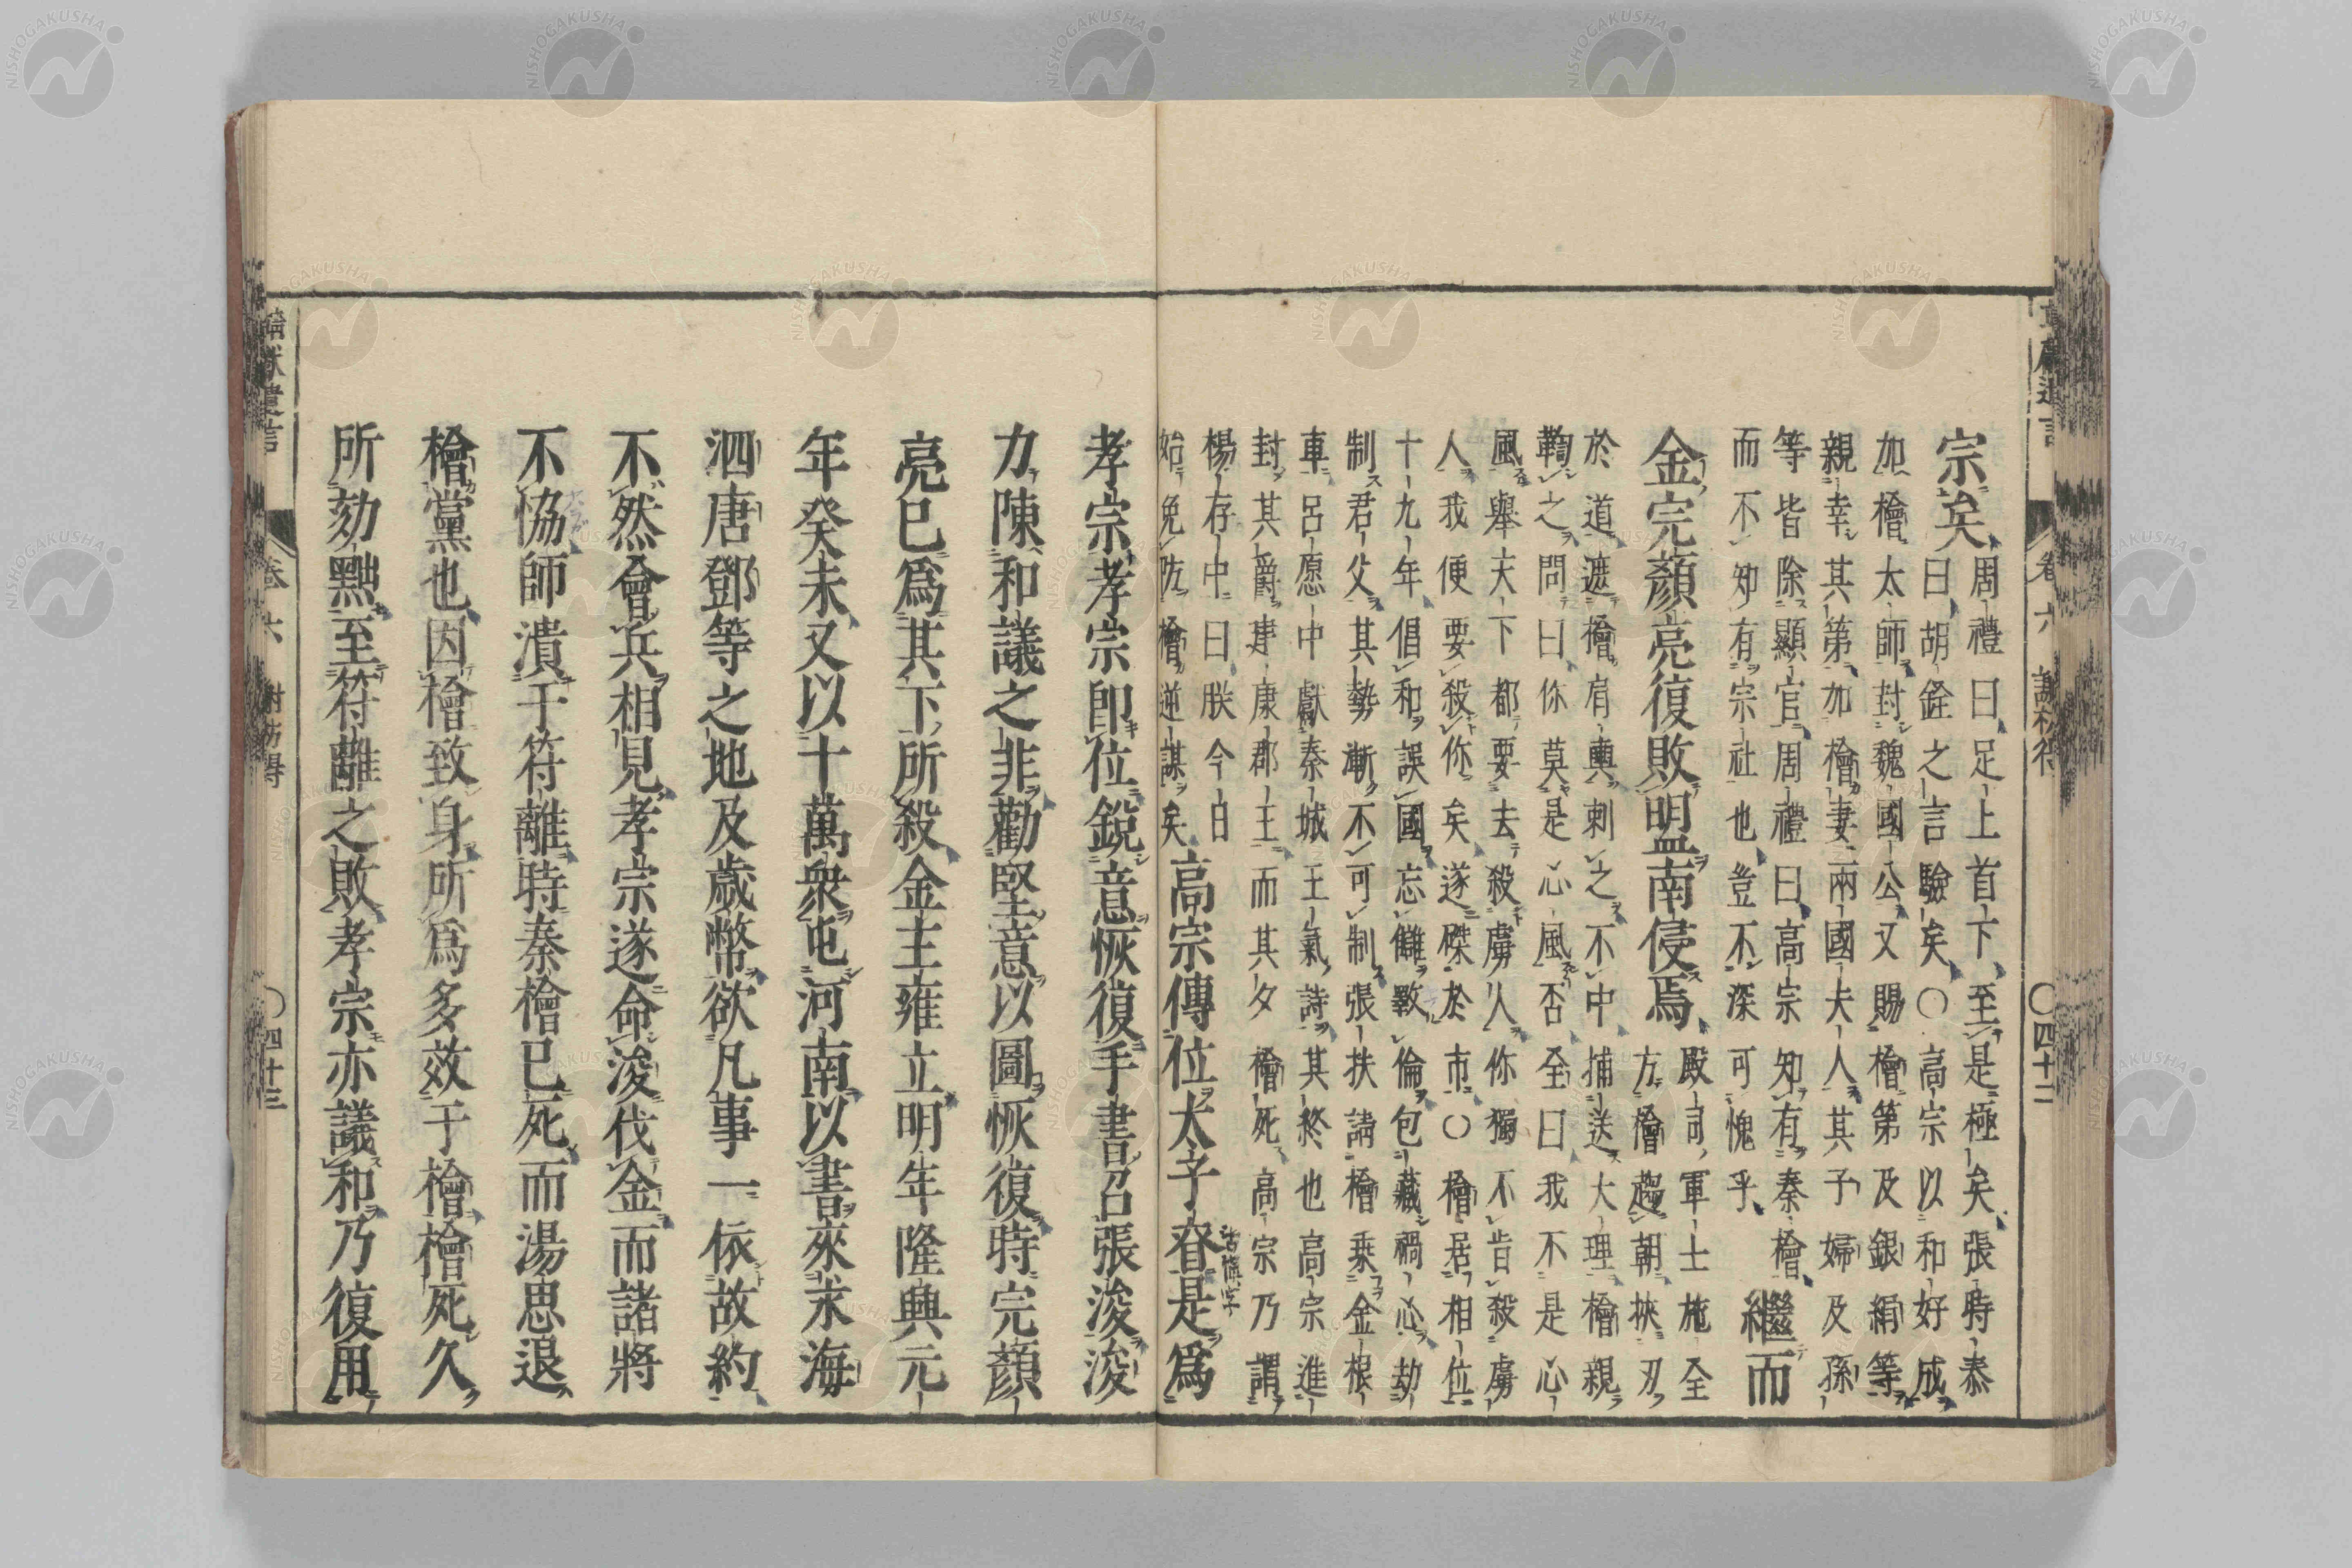 宗矣
周禮曰足上首下至是極矣張時泰
曰胡銓之言驗矣〇高宗以和好成
加檜太師封魏國公又賜檜第及銀絹等
親幸其第加檜妻兩國夫人其子婦及孫
等皆除顯官周禮曰高宗知有秦檜
而不知有宗社也豈不深可愧乎
繼而
金完顏亮復敗盟南侵焉
殿司軍士施全
方檜趨朝挾刃
於道遮檜肩輿刺之不中捕送大理檜親
鞫之問曰你莫是心風否全曰我不是心
風舉天下都要去殺虜人你獨不肯殺虜
人我便要殺你矣遂磔於市〇檜居相位
十九年倡和誤國忘讎斁倫包藏禍心劫
制君父其勢漸不可制張扶請檜乘金根
車呂愿中獻秦城王氣詩其終也高宗進
封其爵建康郡王而其夕檜死高宗乃謂
楊存中曰朕今日
始免防檜逆謀矣
高宗傳位太子眘是爲
古愼字
孝宗孝宗卽位銳意恢復手書召張浚浚
力陳和議之非勸堅意以圖恢復時完顏
亮已爲其下所殺金主雍立明年隆興元
年癸未又以十萬衆屯河南以書來求海
泗唐鄧等之地及歲幣欲凡事一依故約
不然會兵相見孝宗遂命浚伐金而諸將
不恊師潰于符離時秦檜已死而湯思退
檜黨也因檜致身所爲多效于檜檜死久
所劾黜至符離之敗孝宗亦議和乃復用
卷六
謝枋得
〇四十二
靖獻遺言
卷六
謝枋得
〇四十三